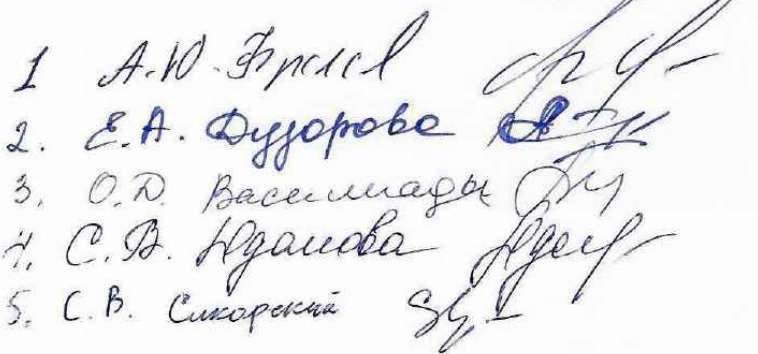 1 А.Ю.
2. Е.А. Дудорова
3. О.Д. Василиады
4. С.В. Юданова
5. С.В. Сикорский